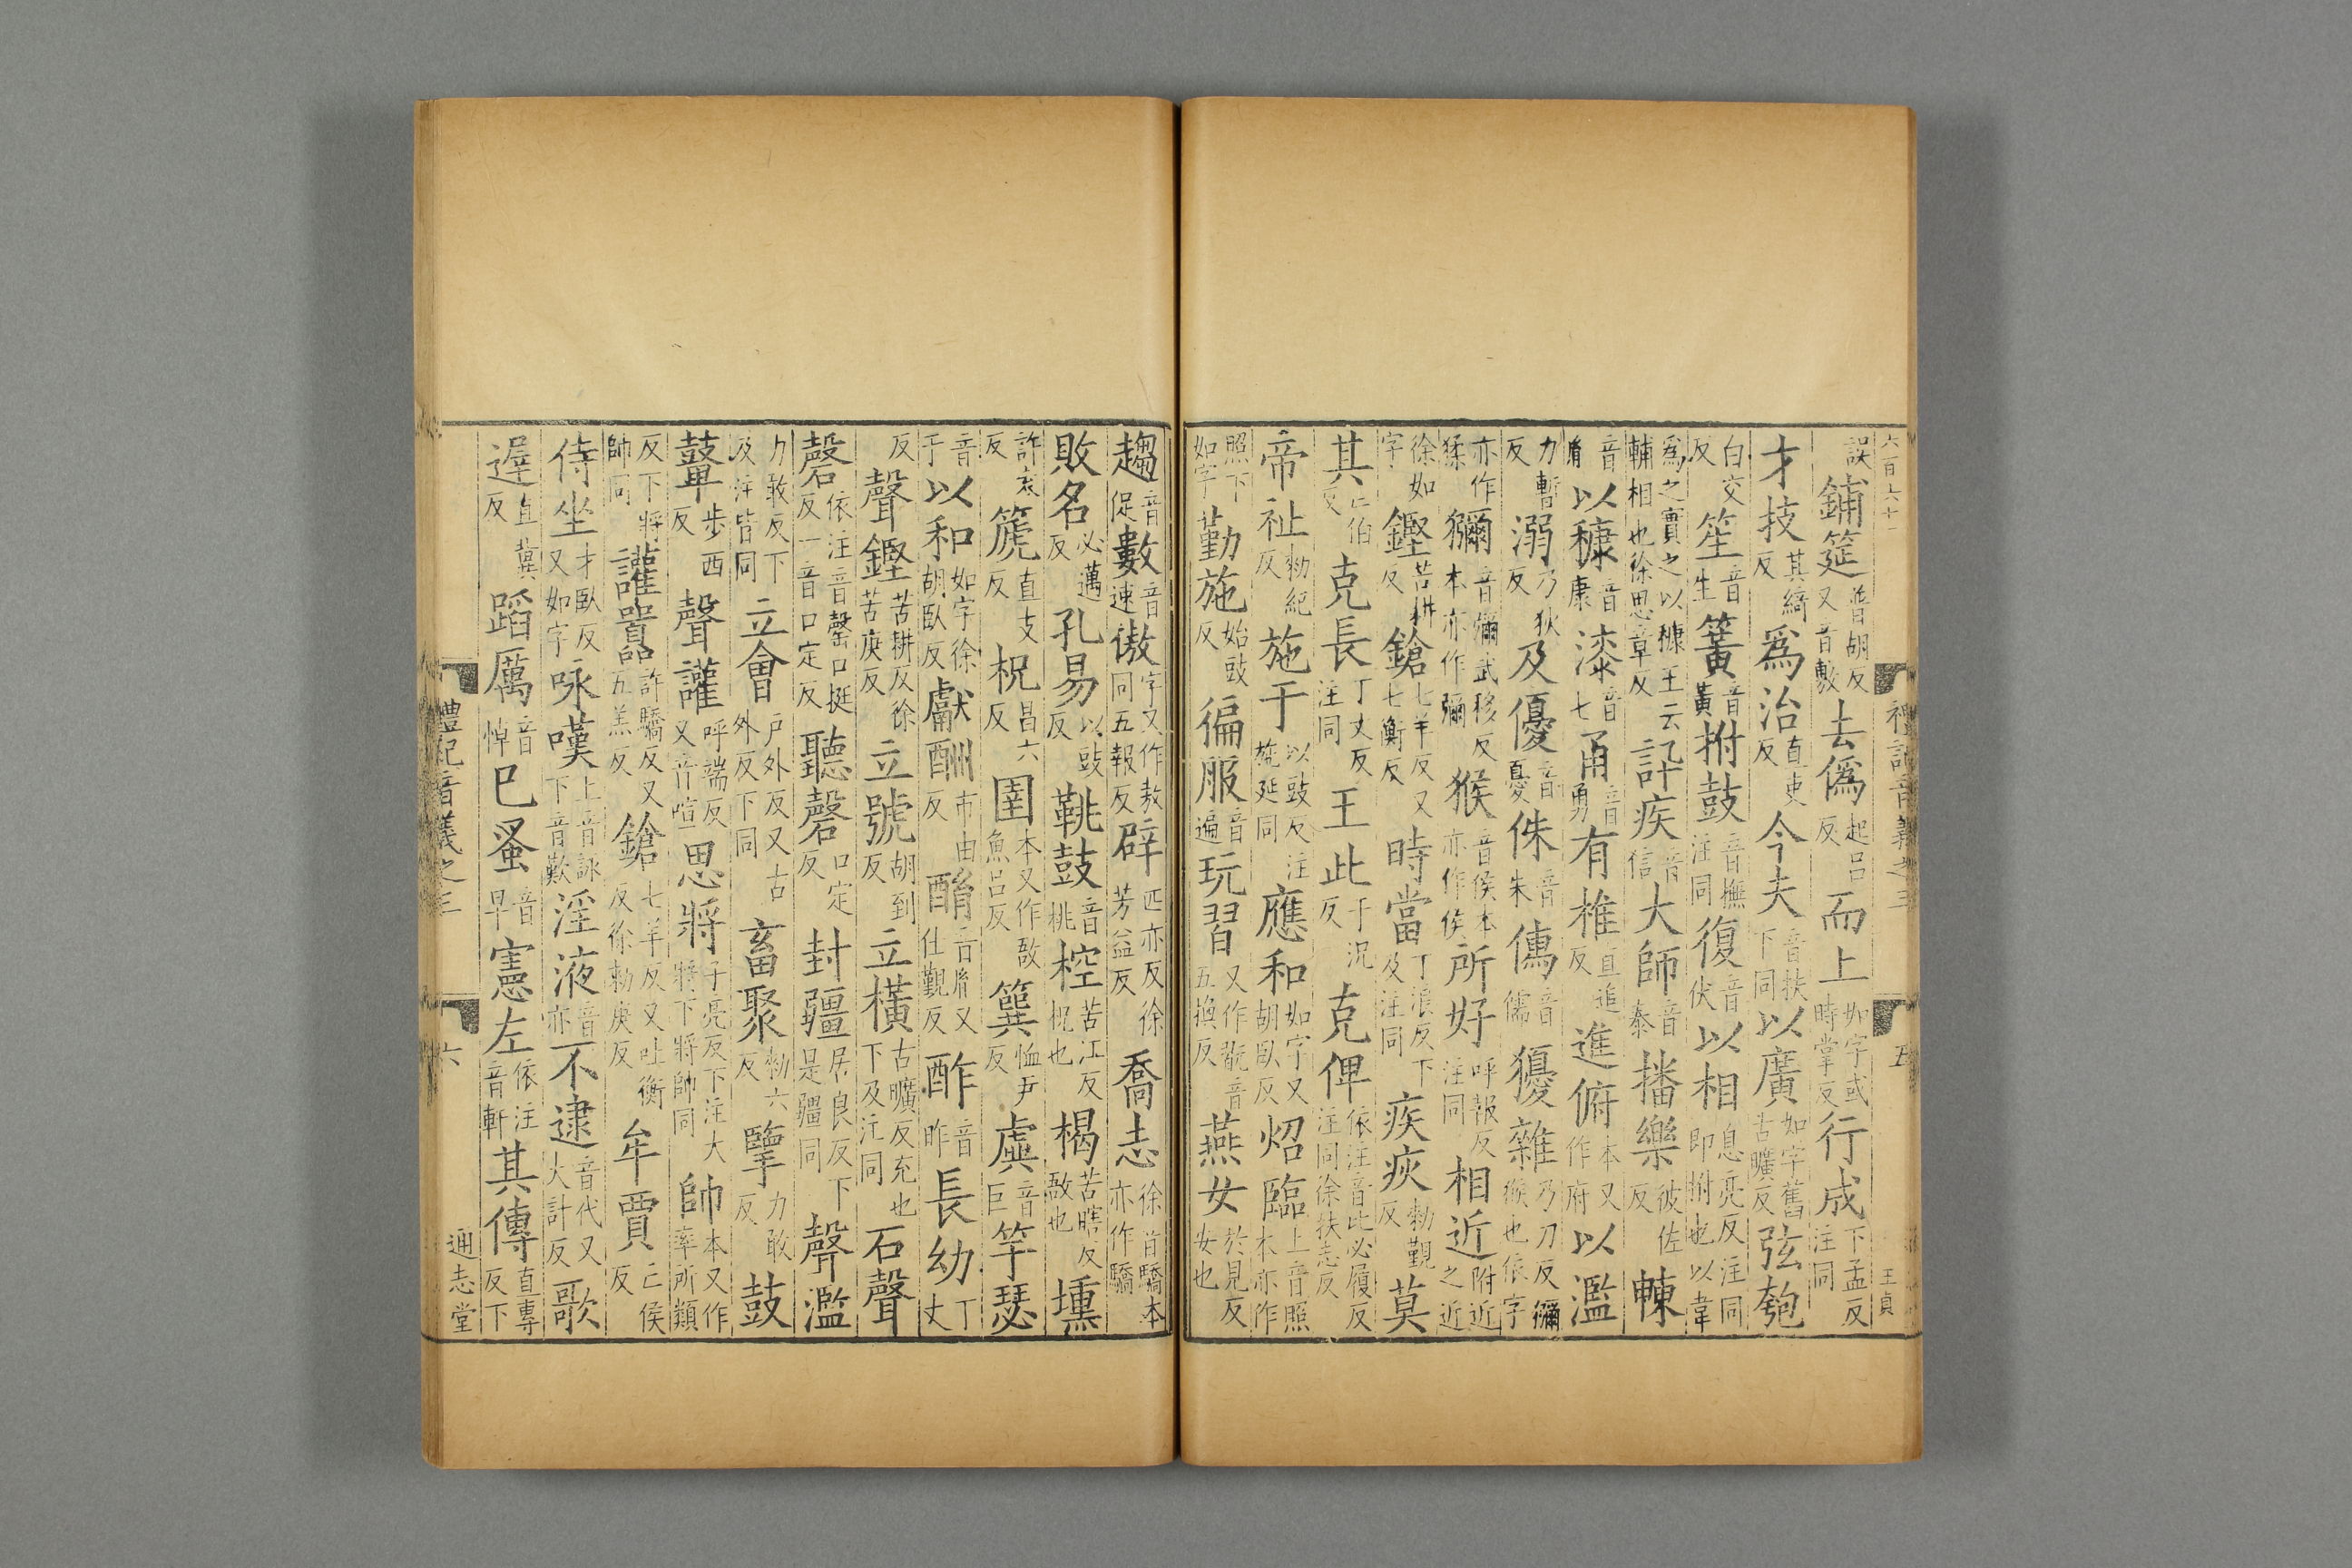 六百六十 禮記音義之三 五 王貞
誤鋪筵普胡反又音敷去僞起呂反而上如字或時掌反行成下孟反注同
才技其綺反爲治直吏反今夫音扶下同以廣如字舊古曠反弦匏
白交反笙音生簧音黃拊鼓音撫注同復音伏以相息亮反注同即拊也以韋
爲之實之以穅王云輔相也徐思章反訊疾音信大師音泰播樂彼佐反㯥
音胤以穅音康漆音七甬音勇有椎直追反進俯本又作府以濫
力暫反溺乃狄反及優音憂侏音朱儒音儒獶雜乃刀反獼猴也依字
亦作猱獼音彌武移反本亦作彌猴音侯本亦作侯所好呼報反注同相近附近之近
徐如字鏗苦耕反鎗七羊反又七衡反時當丁浪反下及注同疾疢勑覲反莫
其亡伯反克長丁丈反注同王此于況反克俾依注音比必履反注同徐扶志反
帝祉勑紀反施于以豉反注施延同應和如字又胡臥反炤臨上音照本亦作
照下如字勤施始豉反徧服音遍玩習又作翫音五換反燕女於見反安也
趨音促數音速傲字又作敖同五報反辟匹亦反徐芳益反喬志徐音驕本亦作驕
敗名必邁反孔易以豉反鞉鼓音桃椌苦江反柷也楬苦瞎反敔也壎
許袁反篪直支反柷昌六反圉本又作敔魚呂反簨恤尹反虡音巨竽瑟
音于以和如字徐胡臥反獻酬市由反酳音胤又仕覲反酢音昨長幼丁丈
反聲鏗苦耕反徐苦庚反立號胡到反立橫古曠反充也下及注同石聲
磬依注音罄口挺反一音口定反聽磬口定反封疆居良反下是疆同聲濫
力敢反下及注皆同立會戶外反又古外反下同畜聚勑六反擥力敢反鼓
鼙步西反聲讙呼端反又音喧思將子亮反下注大將下將帥同帥本又作率所類
反下將帥同讙囂許驕反又五羔反鎗七羊反又吐衡反徐勑庚反牟賈亡侯反
侍坐才臥反又如字咏嘆上音詠下音歎淫液音亦不逮音代又大計反歌
遟直冀反蹈厲音悼巳蚤音早憲左依注音軒其傳直專反下
禮記音義之三 六 通志堂